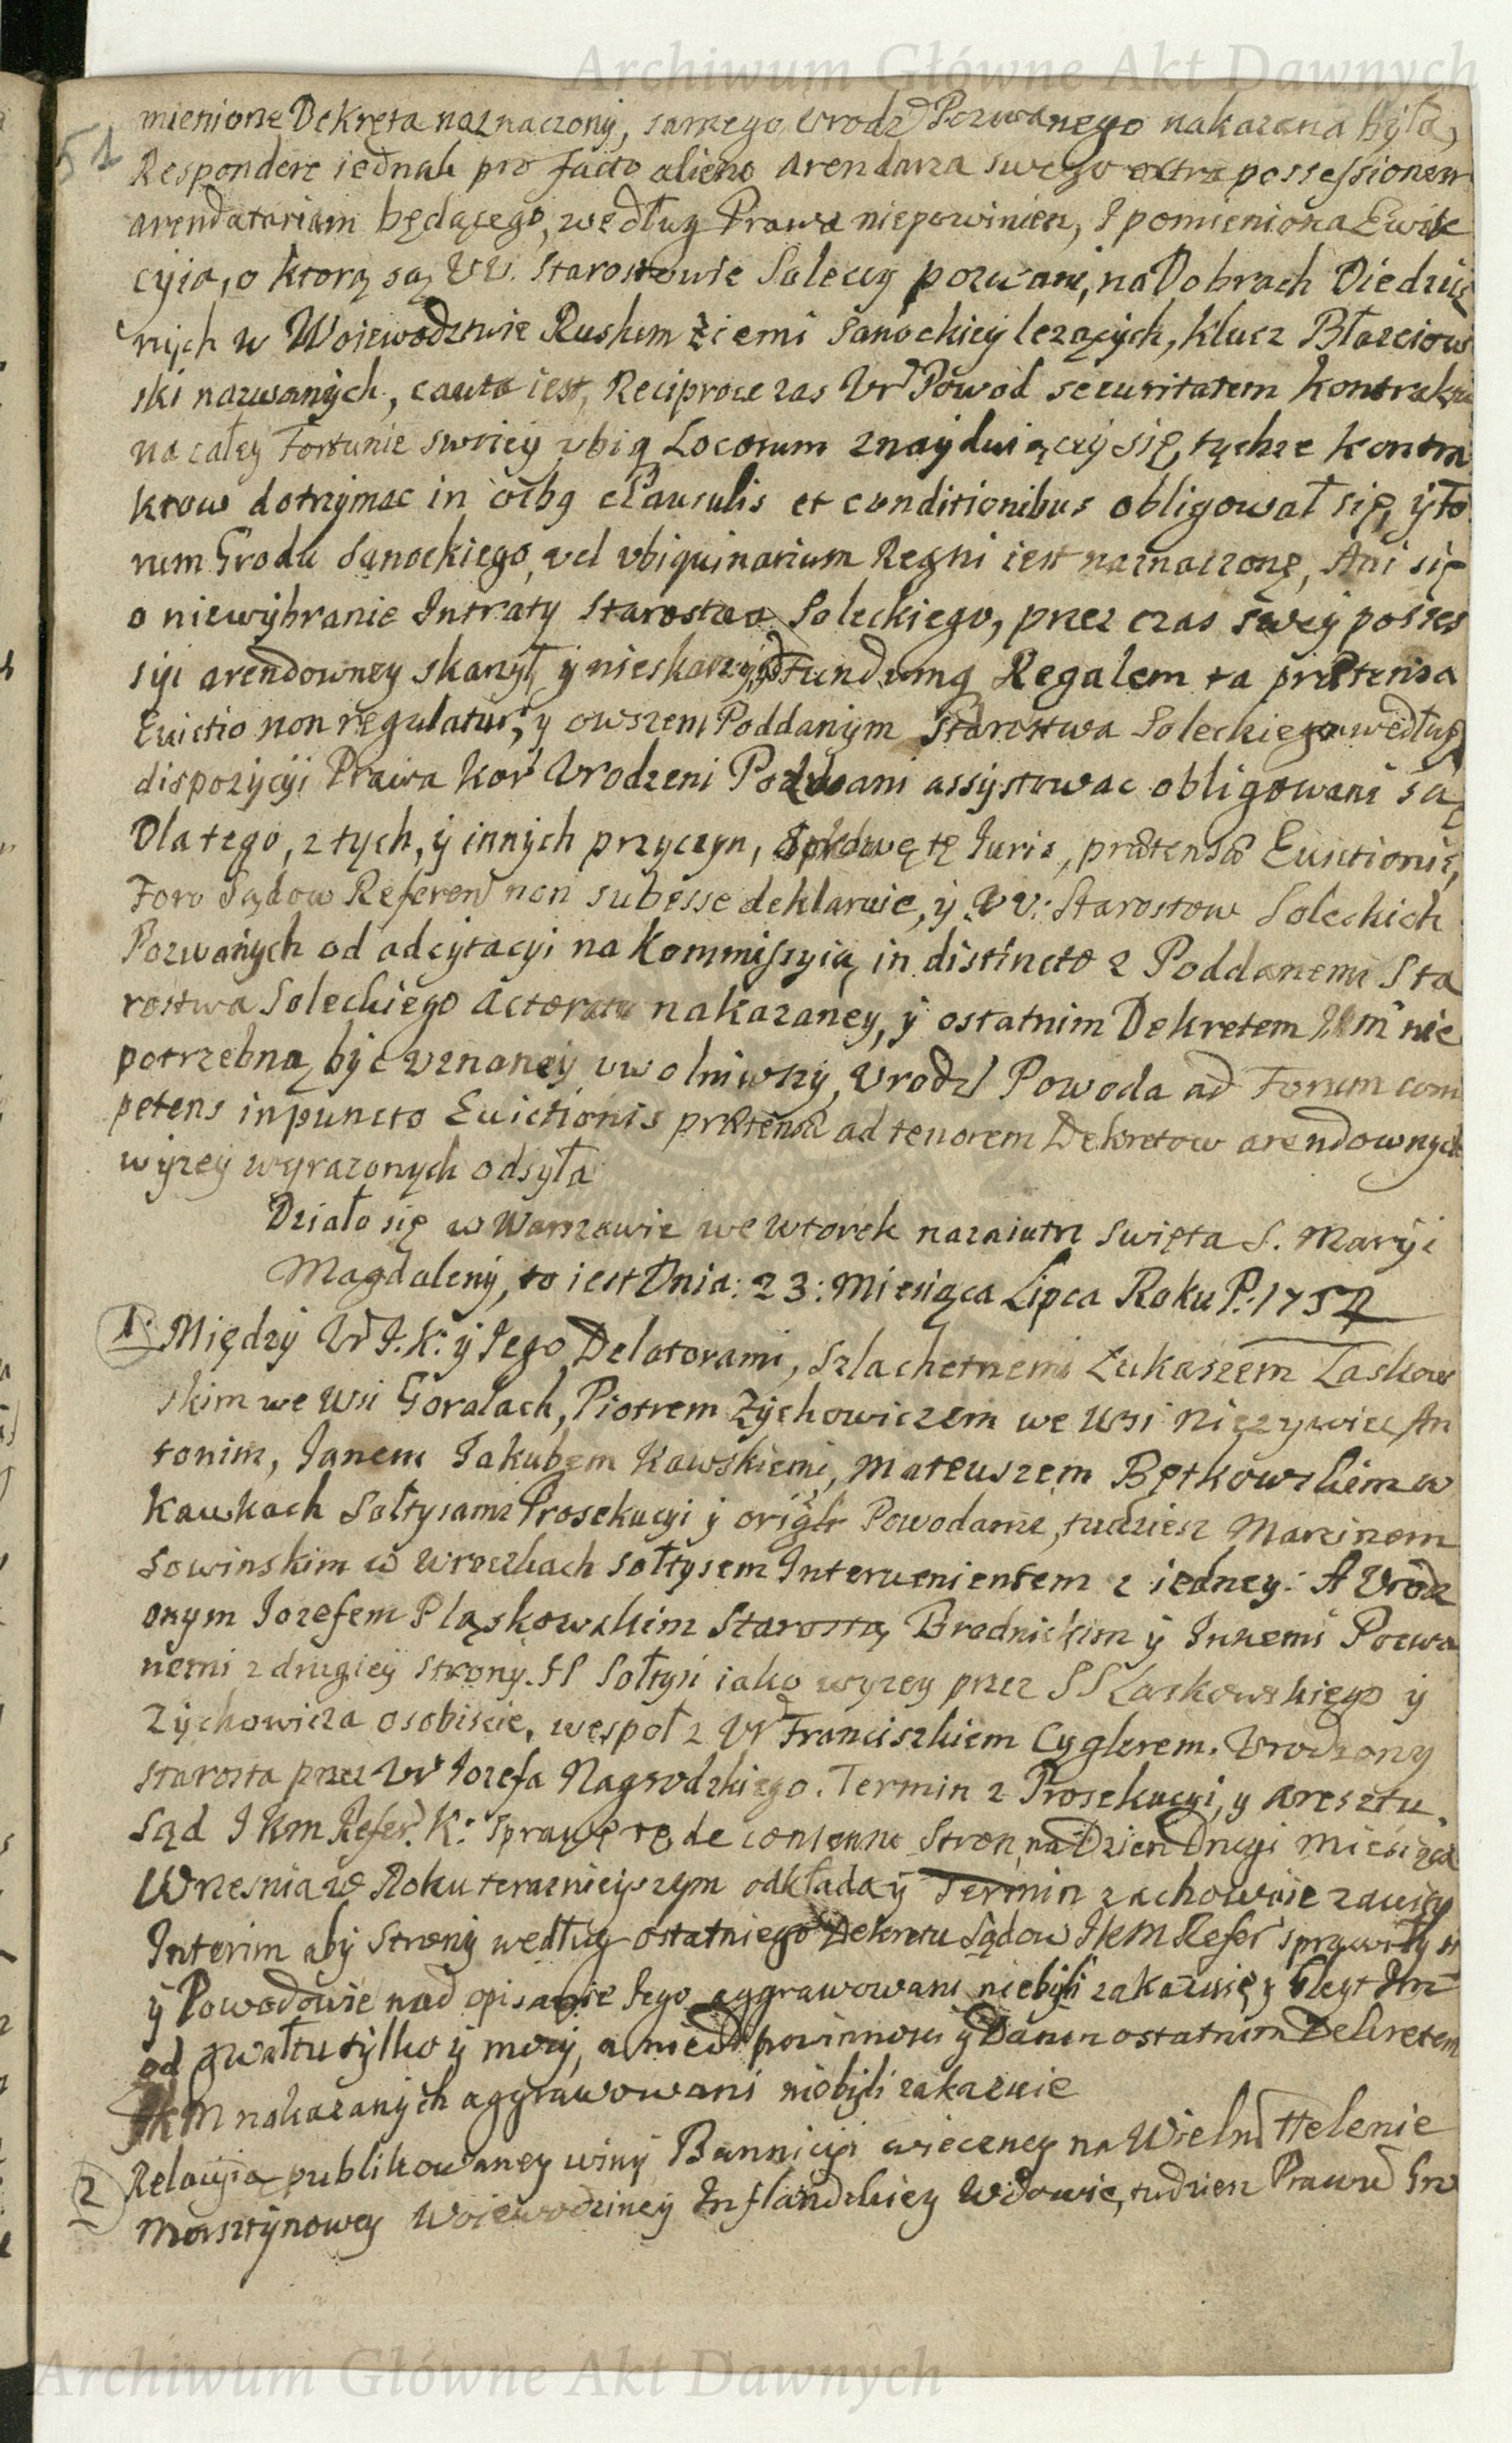 Archiwum Główne Akt Dawnych
51
mienione Dekreta naznaczony, samego Urodz Pozwanego nakazana była,
Respondere iednak pro facto alieno arendarza swego extra possessionem
arendatariam będącego, według Prawa niepowinien, I pomieniona Ewik
cyia, o ktorą są UU. Starostowie Soleccy pozwani, na Dobrach Dziedzicz
nych w Woiewodztwie Ruskim Ziemi Sanockiey lezących, Klucz Błazciow
ski nazwanych, cauta iest, Reciproce zas Ur Powod securitatem Kontraktu
na całey Fortunie swoiey ubiq Locorum znayduiącey się, tychze Kontra
ktow dotrzymac in oibq clausulis et conditionibus obligował się, y Fo
rum Grodu Sanockiego, vel ubiquinarium Regni iest naznaczone, Ani się
o niewybranie Intraty Starostwa Soleckiego, przez czas swey posses
syi arendowney skarzył, y nieskarzy, ad fundumq Regalem ta prætensa
Evictio non regulatur, y owszem Poddanym Starostwa Soleckiego według
dispozycyi Prawa Kor Urodzeni Pozwani assystowac obligowani są
Dla tego, z tych, y innych przyczyn, Sprawę tę Iuris, prætensæ Evictionis,
Foro Sądow Referen non subesse deklaruie, y UU: Starostow Soleckich
Pozwanych od adcytacyi na Kommissyią, in distincto z Poddanemi Sta
rostwa Soleckiego Actoratu nakazaney, y ostatnim Dekretem IKm nie
potrzebną byc uznaney uwolniwszy, Urodz Powoda ad Forum com
petens in puncto Evictionis prætensæ ad tenorem Dekretow arendownych
wyzey wyrazonych odsyła
Działo się w Warszawie we Wtorek nazaiutrz Swięta S. Maryi
Magdaleny, to iest Dnia: 23: Miesiąca Lipca Roku P.: 1754
1. Między Ur I.K: y Iego Delatorami, Szlachetnemi Łukaszem Laskow
skim we Wsi Goralach, Piotrem Zychowiczem we Wsi Niezywiec An
tonim, Janem Jakubem Kawskiemi, Mateuszem Bętkowskim w
Kawkach Sołtysami Prosekucyi y origlr Powodami, tudziesz Marcinem
Sowinskim w Wrockach sołtysem Interuenientem z iedney: A Urodz
onym Jozefem Pląskowskim Starostą Brodnickim y Innemi Pozwa
nemi z drugiey strony. SS Sołtysi iako wyzey przez SS Laskowskiego y
Zychowicza osobiscie, wespoł z Ur Franciszkiem Cyglerem. Urodzony
Starosta przez Ur Jozefa Nagrodzkiego. Termin z Prosekucyi, y aresztu.
Sąd I Km Refer. K: Sprawę tę de consensu Stron, na Dzien Drugi Miesiąca
Wrzesnia w Roku teraznieyszym odkłada y Termin zachowuie zawity
Interim aby Strony według ostatniego Dekretu Sądow I K M Refer sprawiły się
y Powodowie nad opisanie Iego aggrawowani niebyli zakazuie, y Gleyt Im
od gwałtu tylko y mocy, a nie od powinnosci y Danin ostatnim Dekretem
IKM nakazanych aggrawowani niebyli zakazuie
2 Relacyia publikowaney winy Bannicyi wieczney na Wieln Helenie
Morsztynowey Woiewodziney Inflandzkiey Wdowie, tudziesz Prawu
Archiwum Główne Akt Dawnych